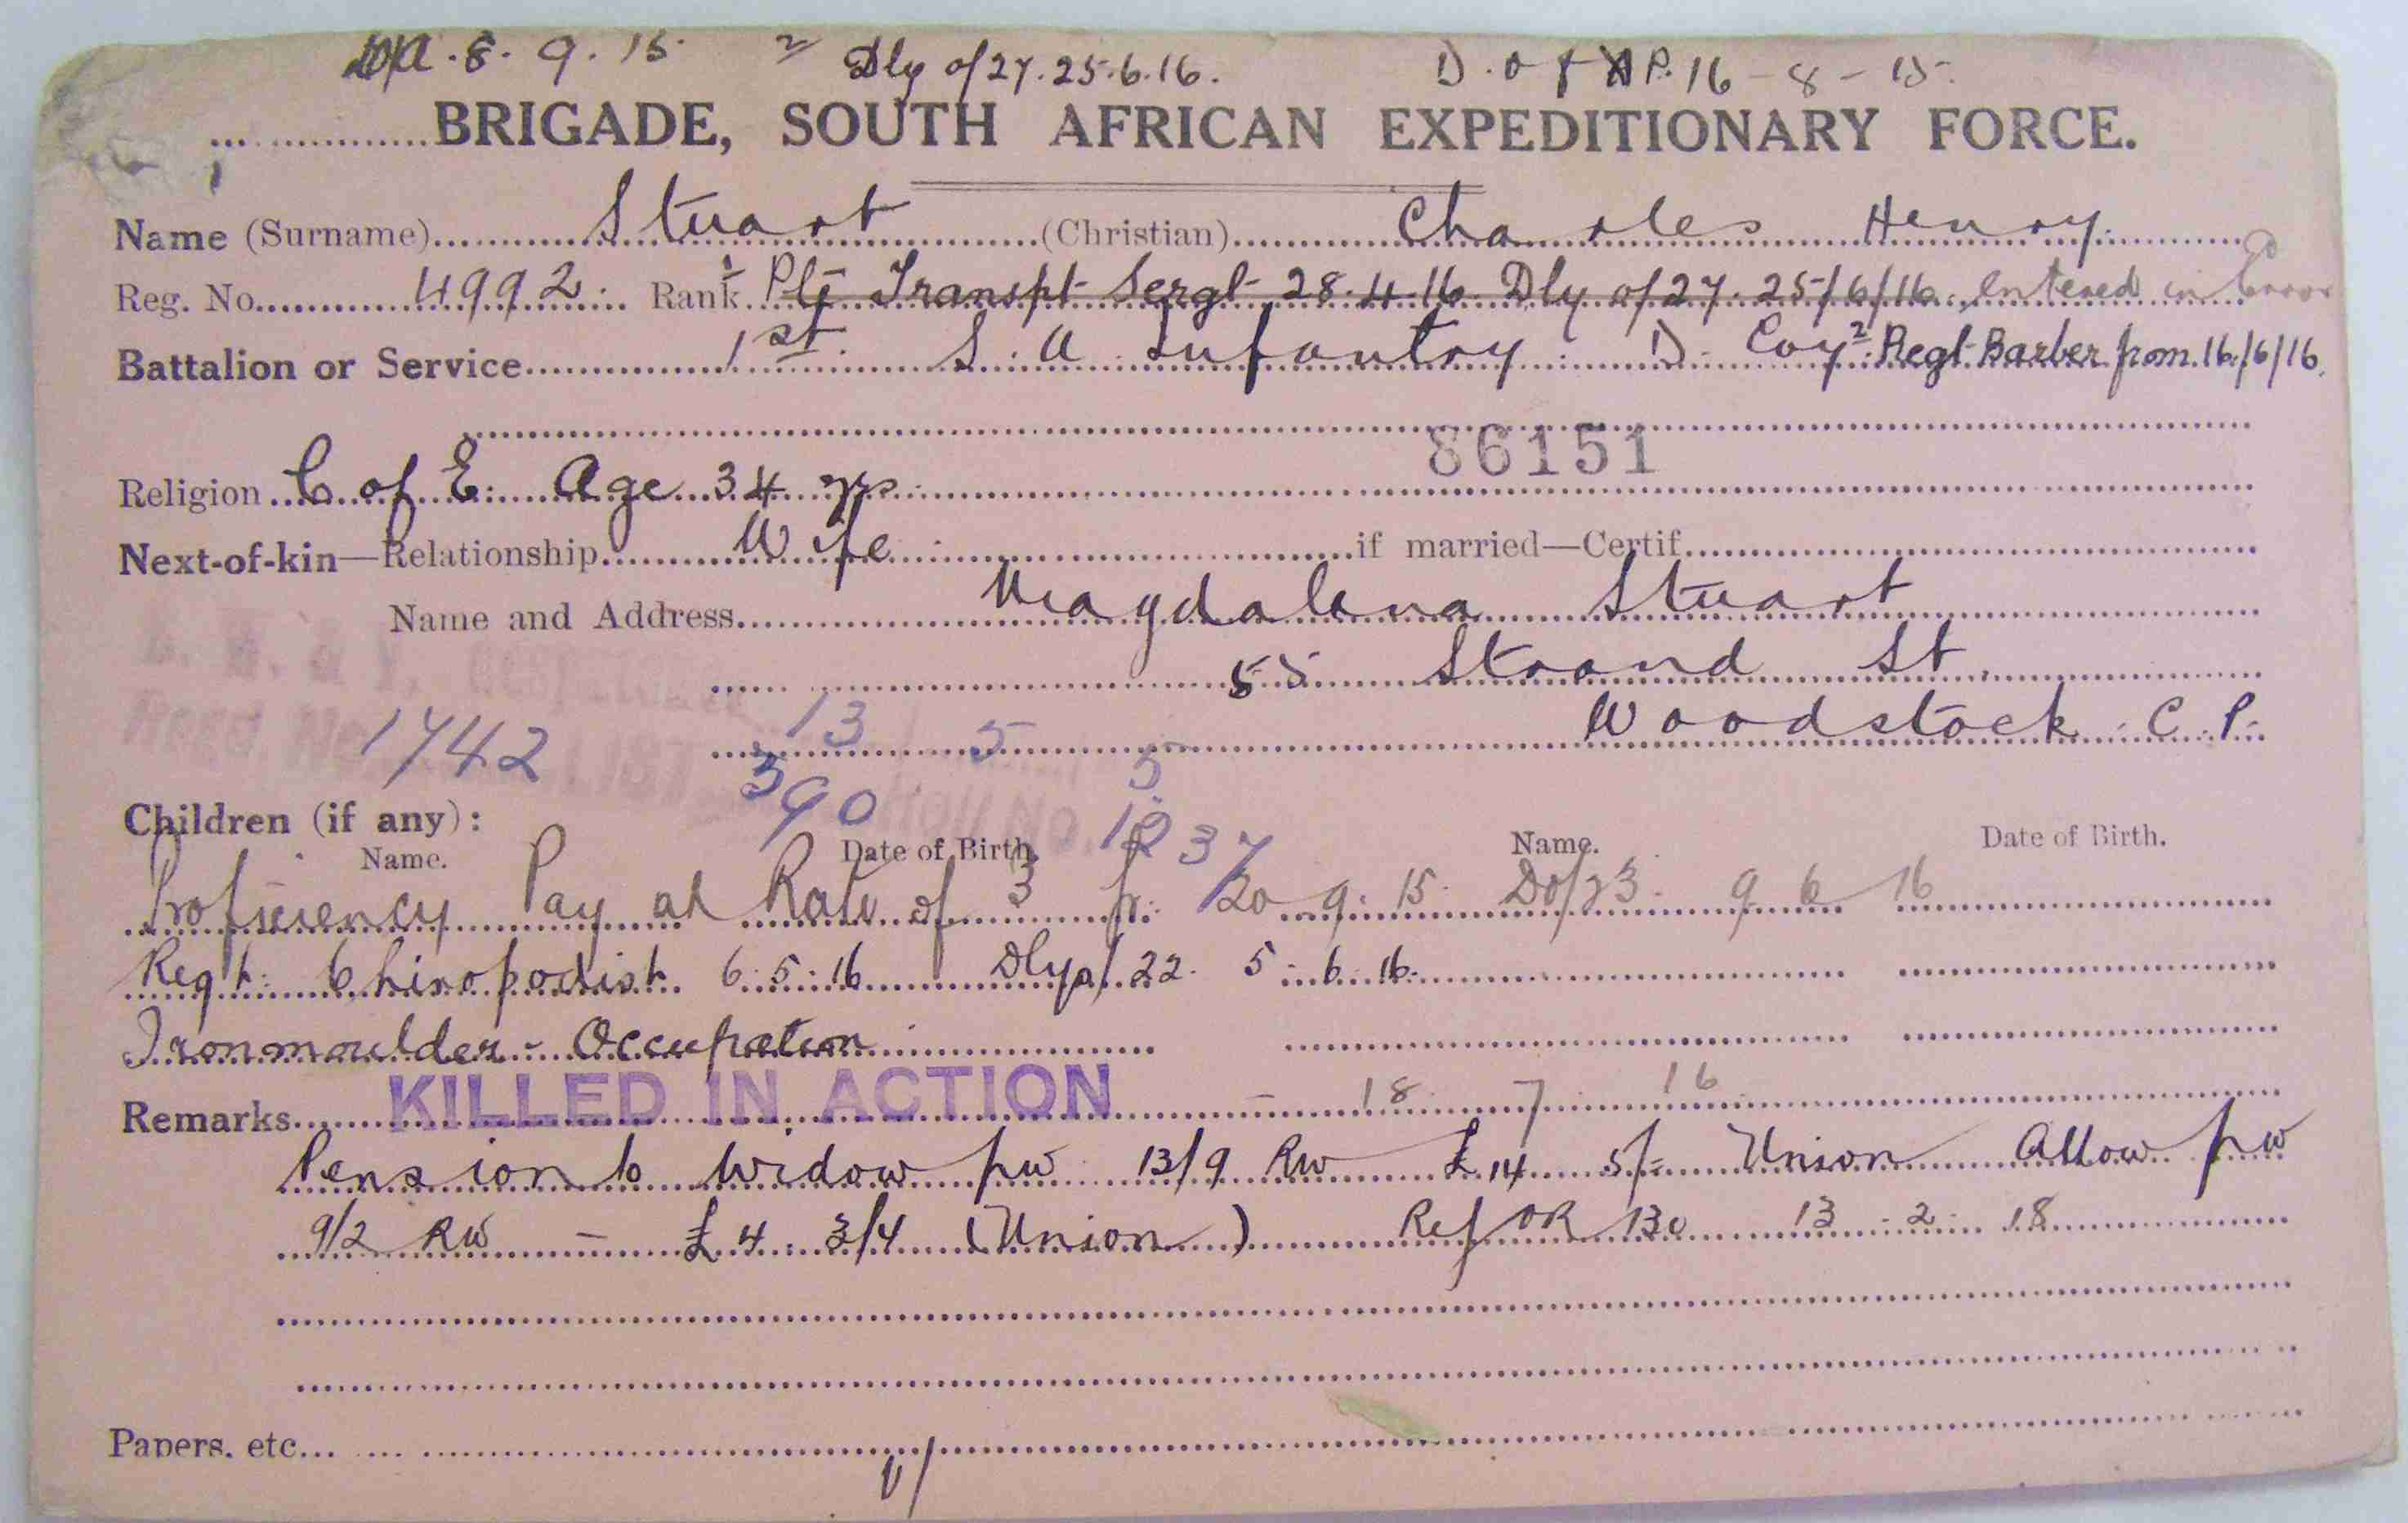 D/A. 8. 9. 15 2/ Dly of 27. 25.6.16. D. of AP. 16-8-15
BRIGADE, SOUTH AFRICAN EXPEDITIONARY FORCE.
Name (Surname) Stuart (Christian) Charles Henry
Reg. No. 4992. Rank Pte Transpt Sergt 28.4.16. Dly of 27. 25/6/16. Entered in Error
Battalion or Service 1st S. A Infantry D Coy 2 Regt Barber from 16/6/16.
86151
Religion C of E. Age 34 yrs
Next-of-kin—Relationship Wife if married—Certif.
Name and Address Magdalena Stuart
55 Strand St
Woodstock C. P.
1742 13 5
390 5
1237
Children (if any):
Name. Date of Birth. Name. Date of Birth.
Proficiency Pay at Rate of 3 fr. 20 9. 15. DO/23. 9 6 16
Regt. Chiropodist. 6.5.16 Dly of 22. 5.6.16.
Ironmoulder - Occupation
Remarks KILLED IN ACTION - 18 7 16
Pension to Widow pw 13/9 RW £14 5/= Union Allow pw
9/2 RW - £4. 3/4 (Union) Ref OR 130 13-2-18
Papers, etc.